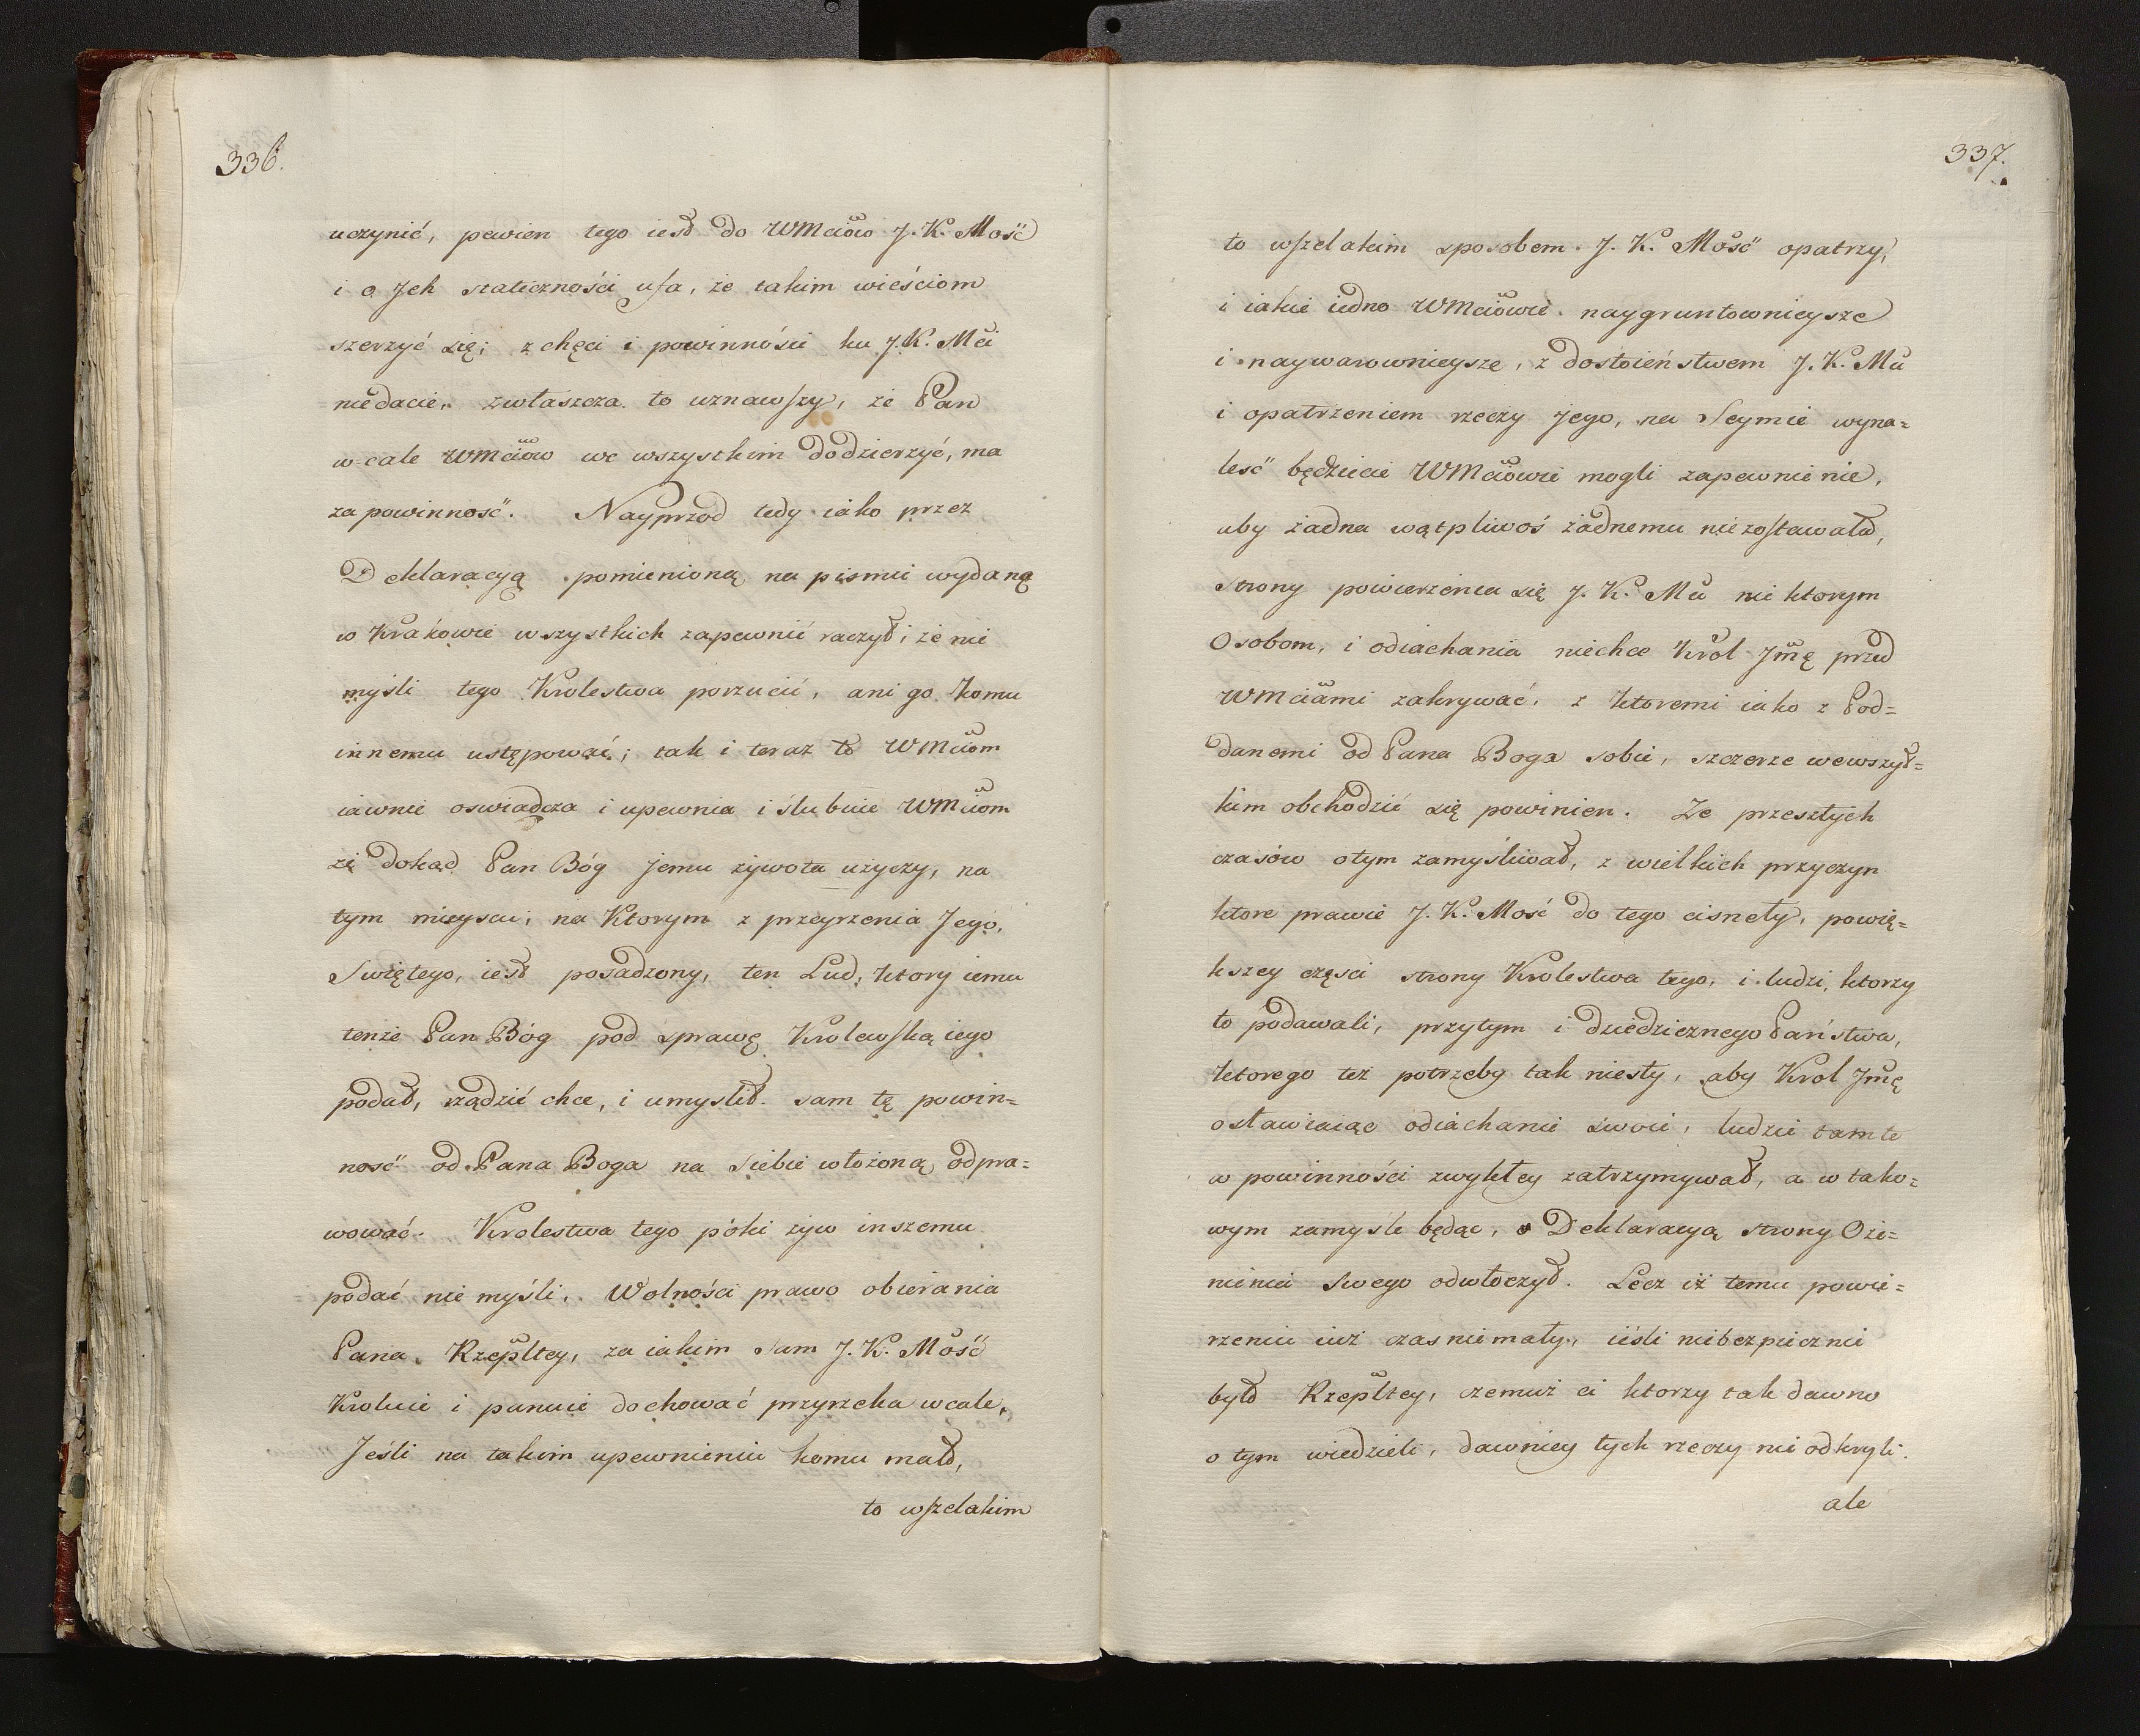 336.
uczynić, pewien tego iest do WMciów J. K. Mość
i o Jch stateczności ufa, że takim wieściom
szerzyć się; z chęci i powinności ku J. K. Mci
niedacie, zwłaszcza to uznawszy, że Pan
w cale WMciow we wszystkim dodzierzyć, ma
za powinność. Nayprzod tedy iako przez
Deklaracyą pomienioną na pismie wydaną
w Krakowie wszystkich zapewnić raczył; że nie
myśli tego Krolestwa porzucić, ani go komu
innemu ustępować; tak i teraz to WMciom
iawnie oswiadcza i upewnia i ślubuie WMciom
że dokąd Pan Bóg Jemu żywota użyczy, na
tym mieyscu; na Ktorym z przeyrzenia Jego,
Swiętego, iest posadzony, ten Lud, ktory iemu
tenże Pan Bóg pod sprawę Krolewską iego
podał, rządzić chce, i umyslił sam tę powin=
ność od Pana Boga na Siebie włożoną odpra=
wować. Krolestwa tego póki żyw inszemu
podać nie myśli. Wolności prawo obierania
Pana Rzepltey, za iakim Sam J. K. Mość
Kroluie i panuie dochować przyrzeka wcale,
Jeśli na takim upewnieniu komu mało,
to wszelakim
337.
to wszelakim sposobem J. K. Mość opatrzy,
i iakie iedno WMciowie naygruntownieysze
i naywarownieysze, z dostoieństwem J. K. Mci
i opatrzeniem rzeczy Jego, na Seymie wyna=
leść będziecie WMciowie mogli zapewnienie,
aby żadna wątpliwoś żadnemu niezostawała,
strony powierzenia się J. K. Mci nie ktorym
Osobom, i odiachania niechce Krol Jmę przed
WMciami zakrywać, z ktoremi iako z Pod=
danemi od Pana Boga sobie, szczerze wewszyst=
kim obchodzić się powinien. Ze przeszłych
czasów otym zamyśliwał, z wielkich przyczyn
ktore prawie J. K. Mość do tego cisnęły, powię=
kszey części strony Krolestwa tego, i ludzi, ktorzy
to podawali, przytym i dziedzicznego Państwa,
ktorego też potrzeby tak niesły, aby Krol Jmę
ostawiaiąc odiachanie swoie, ludzie tamte
w powinności zwykłey zatrzymywał, a w tako=
wym zamysle będąc, Deklaracyą strony Oże=
nienia swego odwłoczył. Lecz iż temu powie=
rzeniu iuż czas niemały, ieśli niebezpiecznie
było Rzepltey, czemuż ci ktorzy tak dawno
o tym wiedzieli, dawniey tych rzeczy nie odkryli.
ale